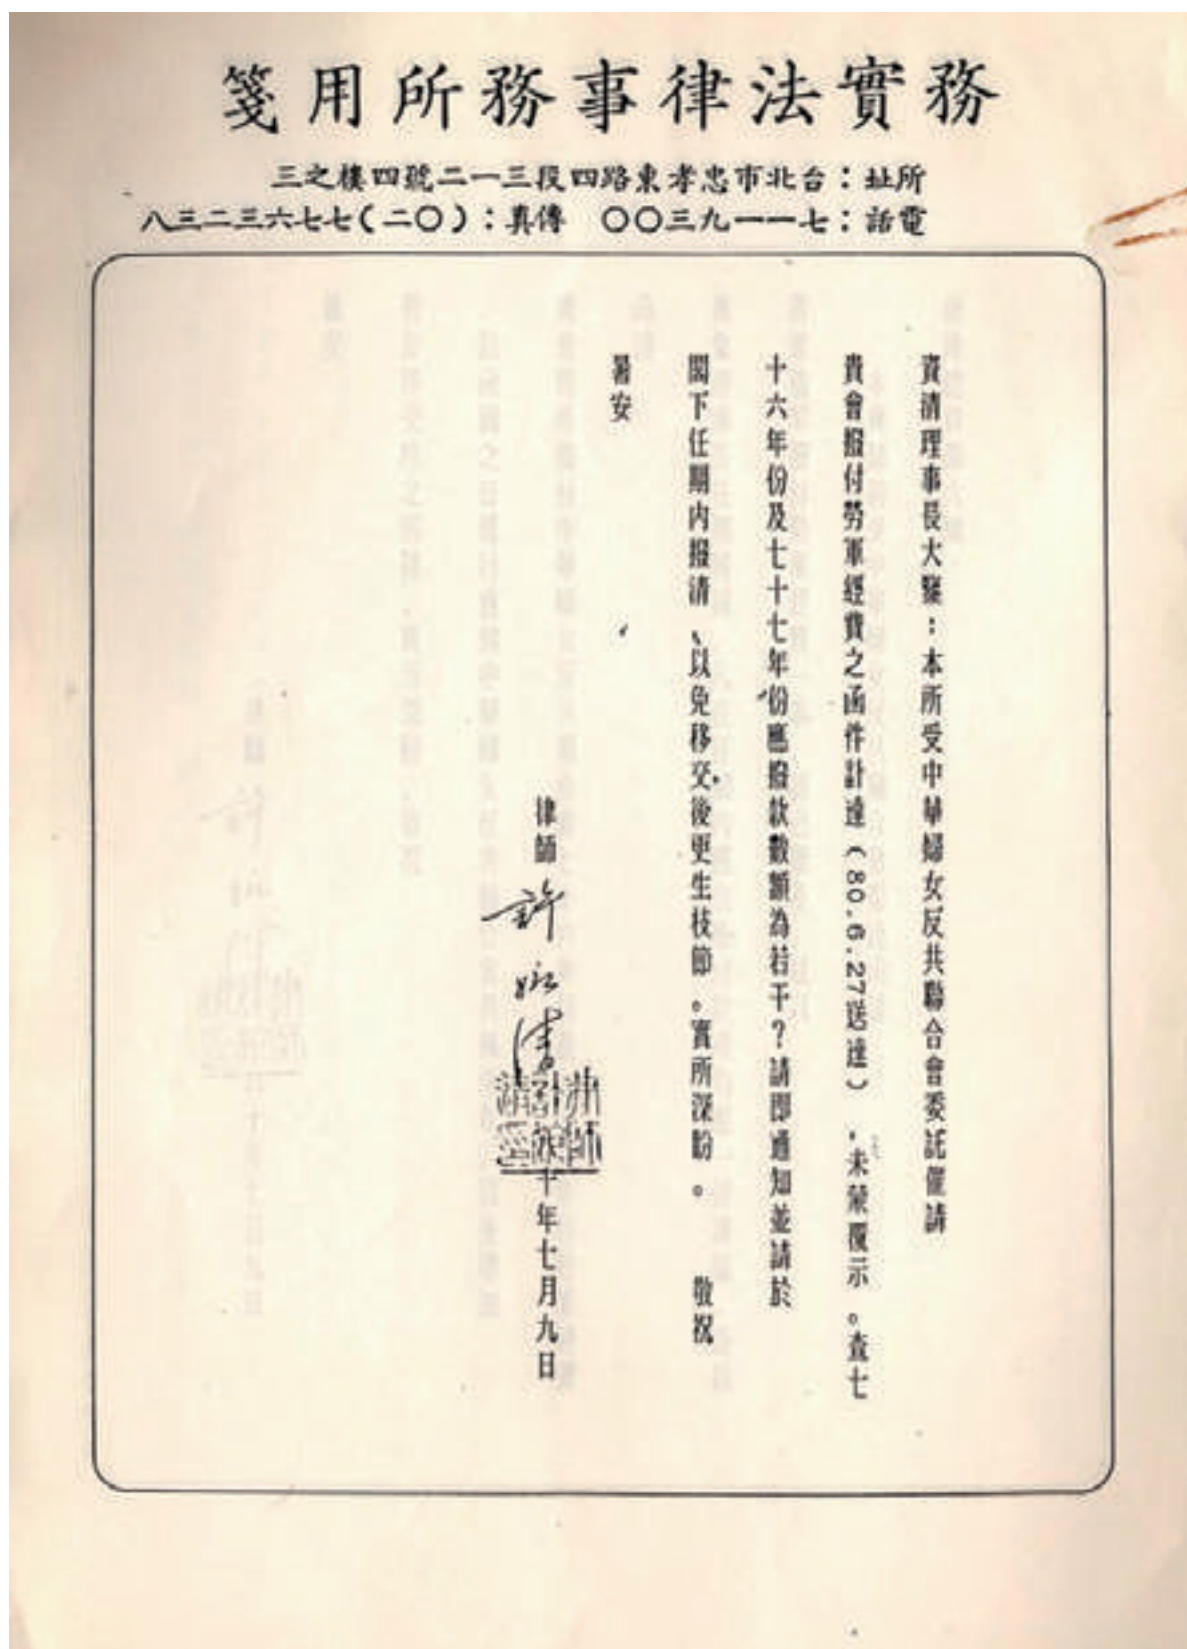 務實法律事務所用箋
所址：台北市忠孝東路四段三一二號四樓之三
電話：七一一九三〇〇　傳真：(〇二)七七六三二三八
資清理事長大鑒：本所受中華婦女反共聯合會委託催請
貴會撥付勞軍經費之函件計達（80.6.27送達），未蒙覆示。查七
十六年份及七十七年份應撥款數額為若干？請即通知並請於
閣下任期內撥清、以免移交後更生枝節。實所深盼。　敬祝
暑安
律師 許婉清 十年七月九日